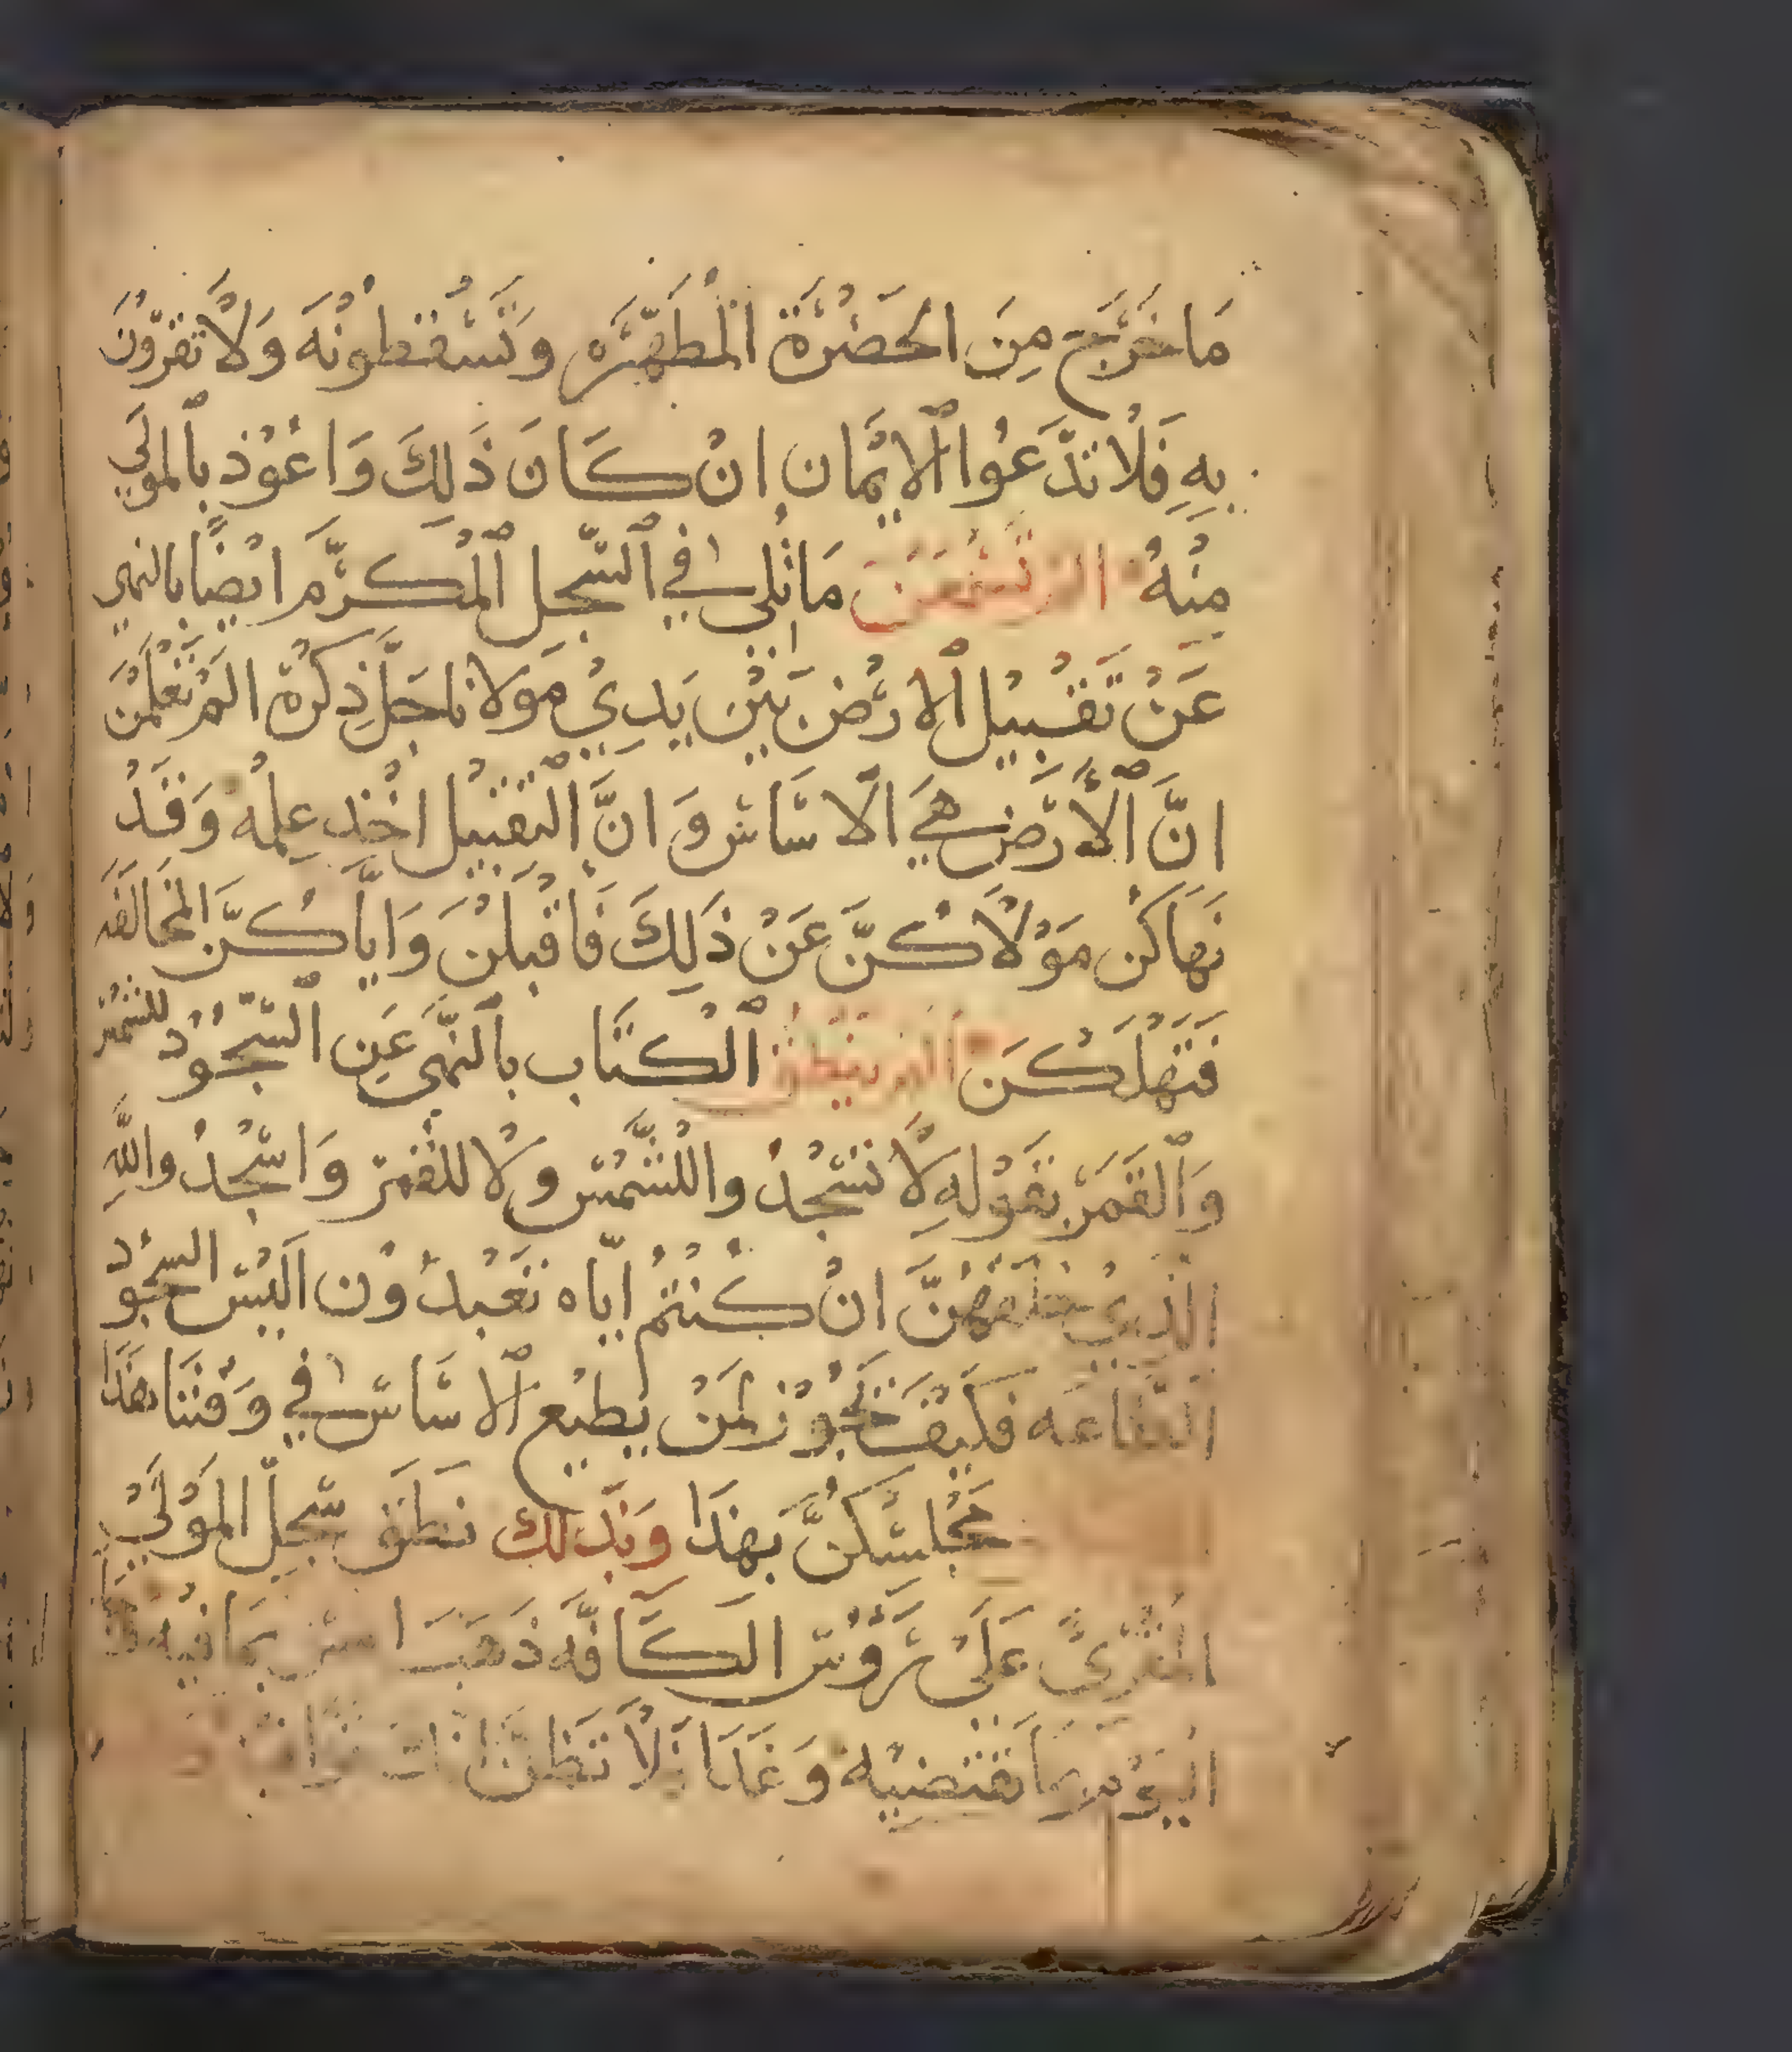 مَا خَرَجَ مِنَ الحَضْرَة المْطَهّرَه وَتَسْقطُونْهَ وَلَا تقرّوُنَ
بِهِ فَلَا تدَّعُوا الايْمَان انْ كَانَ ذَلِكَ وَاعُوْذ بالموْلَى
مِنْهُ الم تَسْمَعْنَ مَا تُلِي في السّجل المْكرَّم ايْضًا بالنهي
عَنْ تَقْبِيْل الارْض بَيْنَ يَدِيْ مَولانا جَلَّ ذِكْرهُ المْ تَعْلَمْنَ
انَّ الأَرْض هِيَ الاسَاس وَانَّ التقبيْل اخْذ عِلمْه وَقَدْ
نَهَاكُن مَوْلَاكُنَّ عَنْ ذَلِكَ فَاقْبلْنَ وَايَّاكُنَّ المخَالَفَه
فَتَهْلَكْنَ الم ينطق الْكتَاب بالنّهي عَنِ السّجُوْد للشّمْس
وَالقَمَر بقَوْلهِ لَا تسْجُدُوا للشَّمْس ولا للقَمَر وَاسْجُدُوا للهِ
الذِيْ خلقهُنَّ انْ كُنْتمُ ايّاه تَعْبدُوْن الَيْس السجُوْد
الطَّاعَه فَكيْفَ تجُوْز لمَنْ يطيْع الاسَاس في وَقْتنَا هَذَا
مجَالسَكُنَّ بهذَا وَبذَلك نطَقَ سّجِلّ الموْلَى
المقْرِيْ عَلَى رَؤُوْس الكَافَّه ذَهَبَ امس بمَا فيْه
اليَوْم بمَا تقتضيْه وَغَدَا لَا تظنّ